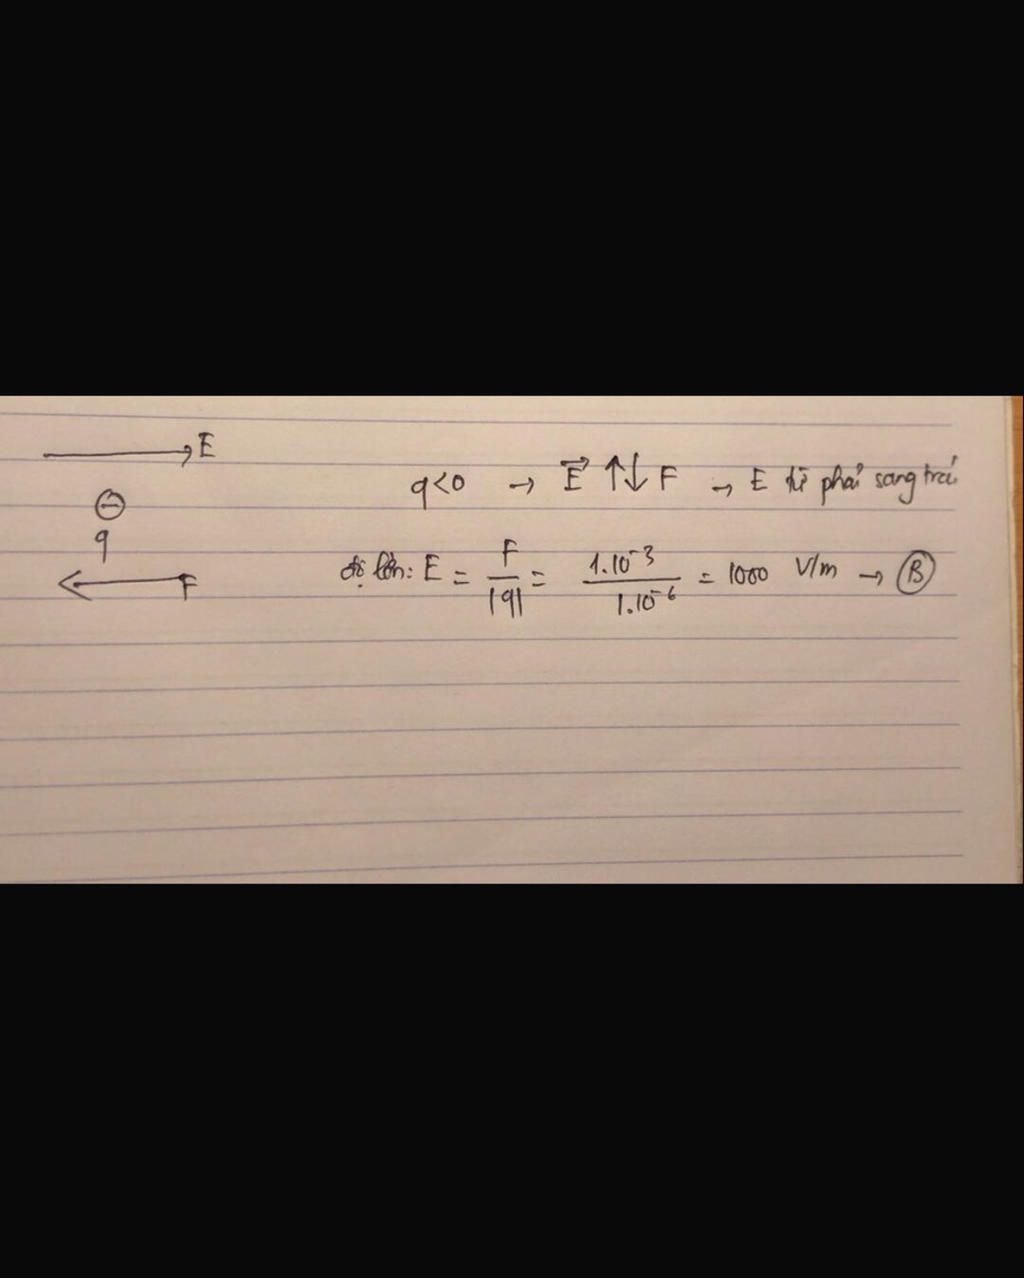 E
q<0 → E⃗ ↑↓ F → E từ phải sang trái
⊖
q
F
độ lớn: E = F/|q| = 1.10⁻³/1.10⁻⁶ = 1000 V/m → Ⓑ